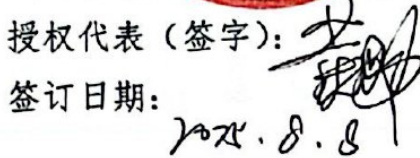 授权代表（签字）：
签订日期：
2025.8.8